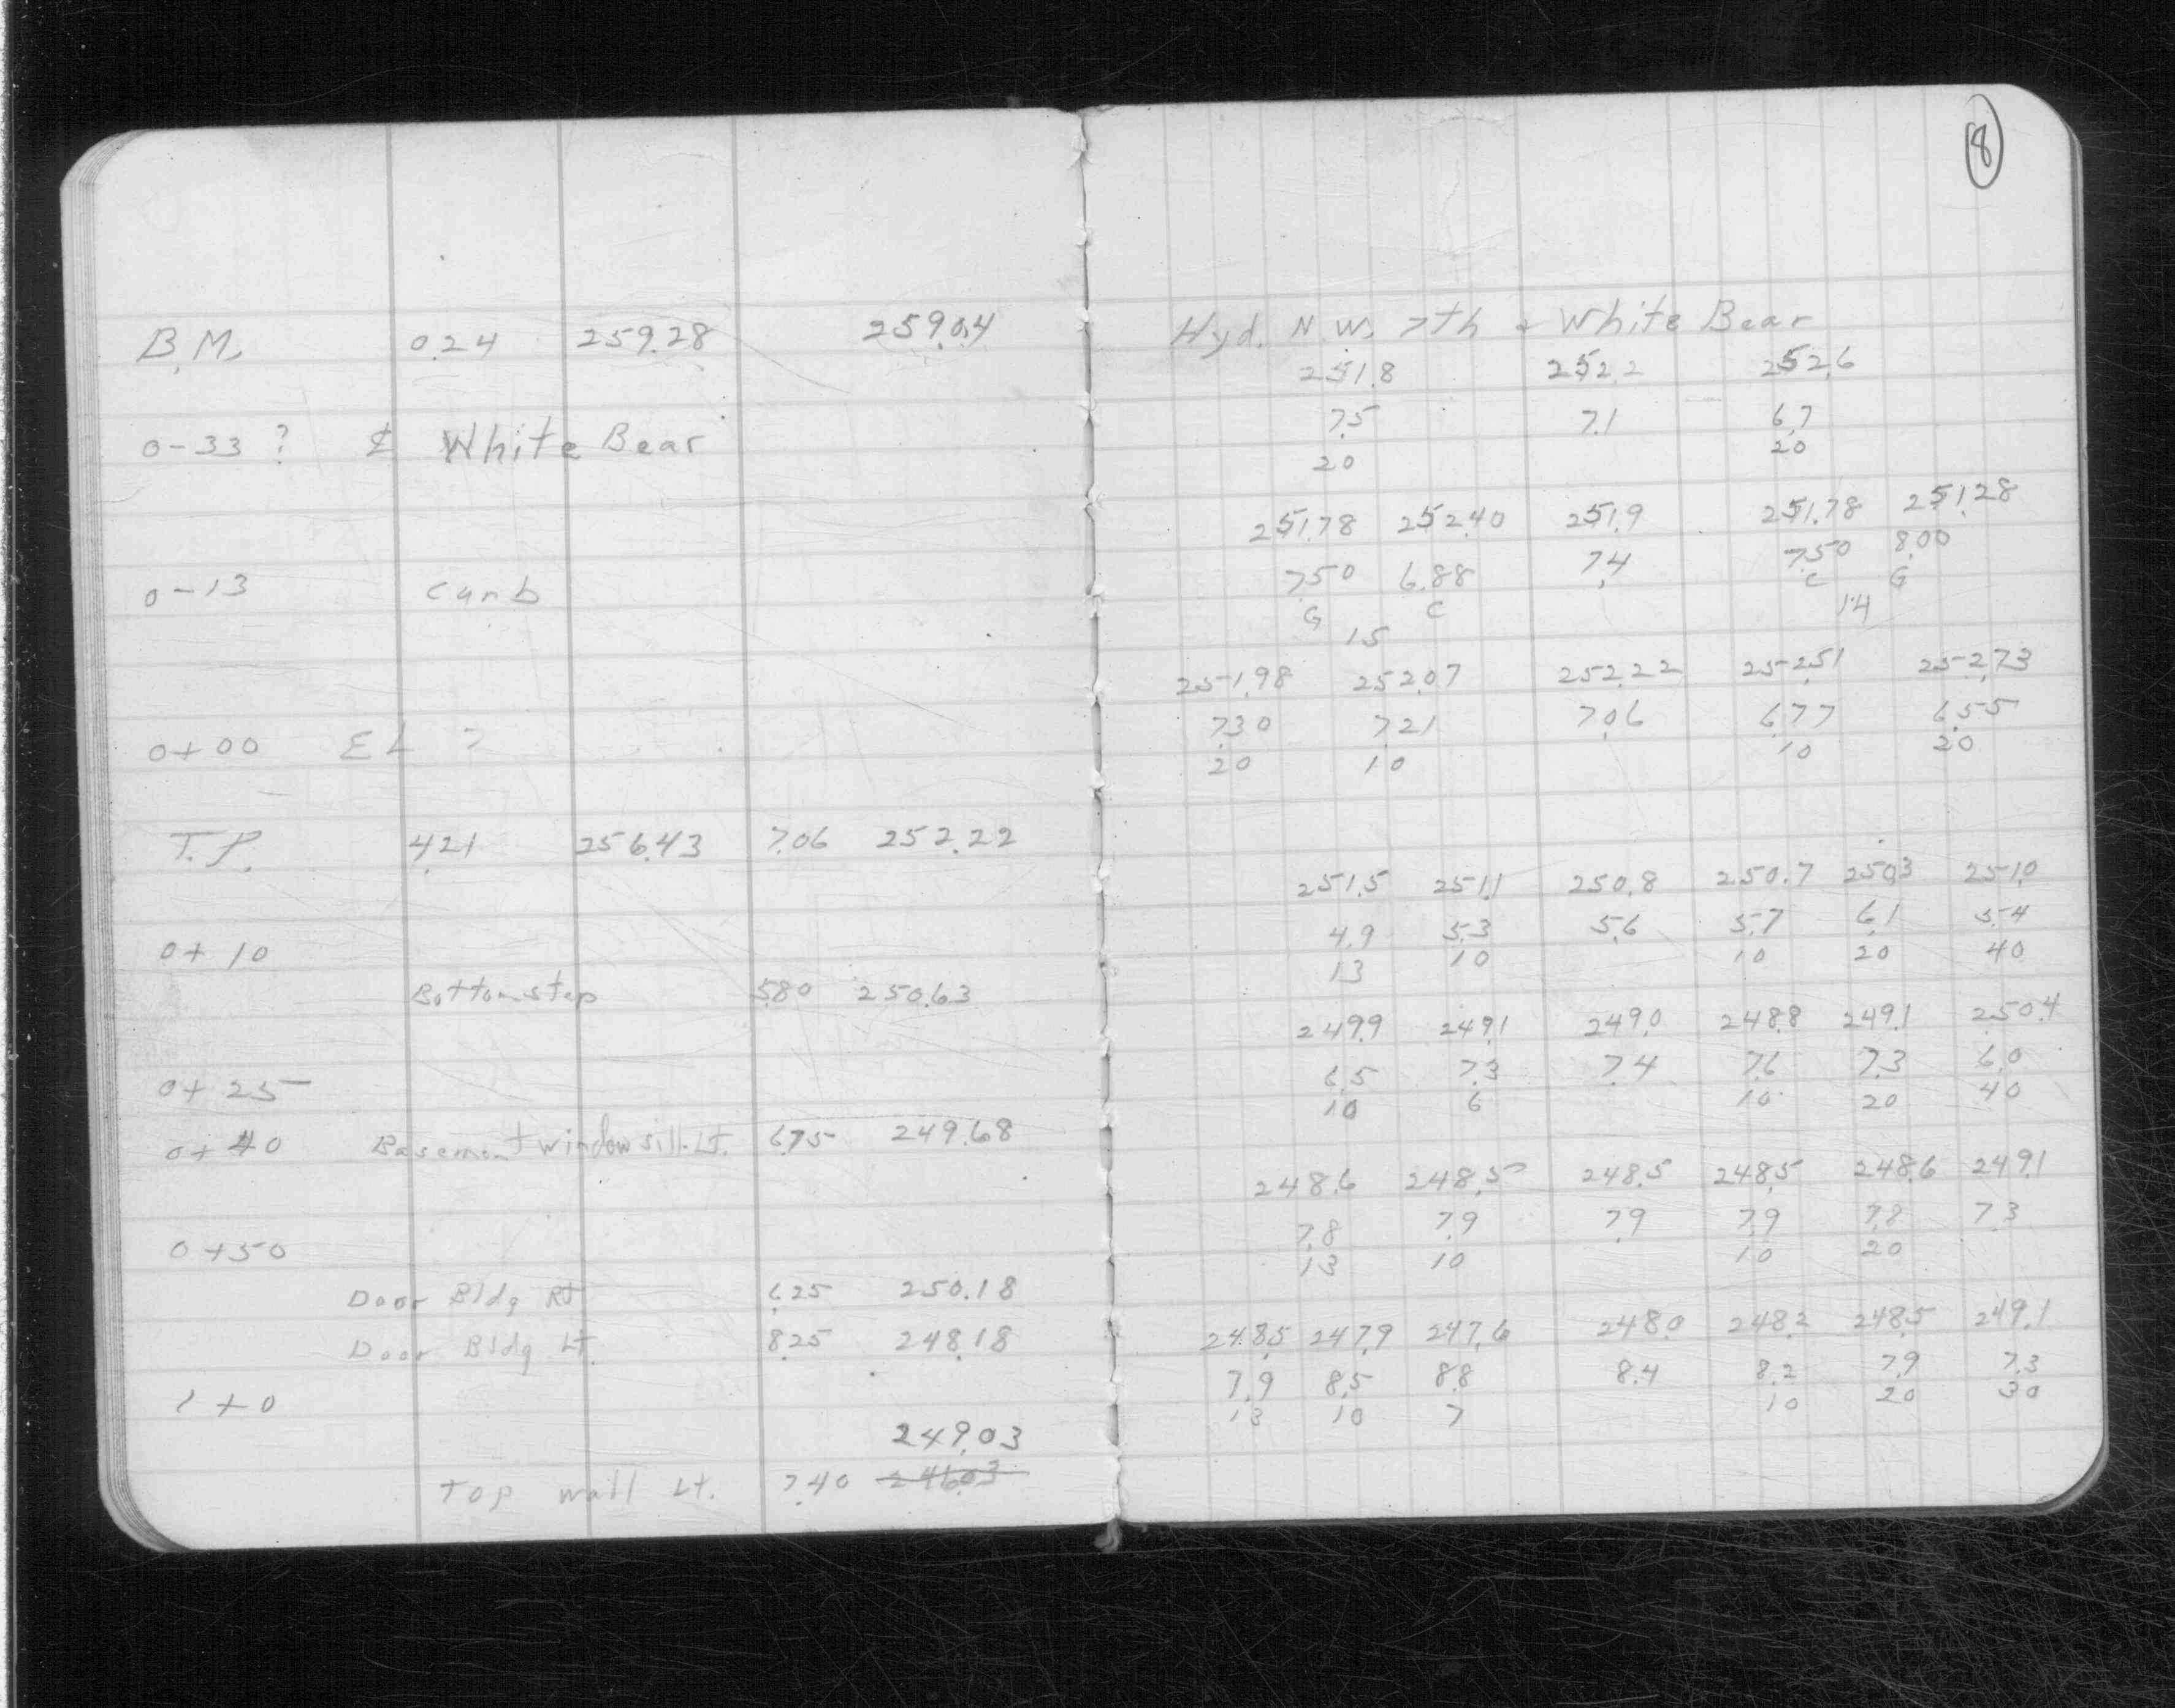 B.M. 0.24 259.28 259.04
0-33 ? ₵ White Bear
0-13 curb
0+00 EL ?
T.P. 4.21 256.43 7.06 252.22
0+10
Bottom step 5.80 250.63
0+25
0+40 Basement window sill-Lt. 6.75 249.68
0+50
Door Bldg Rt 6.25 250.18
Door Bldg Lt. 8.25 248.18
1+0
249.03
Top wall Lt. 7.40 246.03
8
Hyd. N.W. 7th + White Bear
251.8 252.2 252.6
7.5 7.1 6.7
20 20
251.78 252.40 251.9 251.78 251.28
7.50 6.88 7.4 7.50 8.00
G C C G
15 14
251.98 252.07 252.22 252.51 252.73
7.30 7.21 7.06 6.77 6.55
20 10 10 20
251.5 251.1 250.8 250.7 250.3 251.0
4.9 5.3 5.6 5.7 6.1 5.4
13 10 10 20 40
249.9 249.1 249.0 248.8 249.1 250.4
6.5 7.3 7.4 7.6 7.3 6.0
10 6 10 20 40
248.6 248.5 248.5 248.5 248.6 249.1
7.8 7.9 7.9 7.9 7.8 7.3
13 10 10 20
248.5 247.9 247.6 248.0 248.2 248.5 249.1
7.9 8.5 8.8 8.4 8.2 7.9 7.3
13 10 7 10 20 30